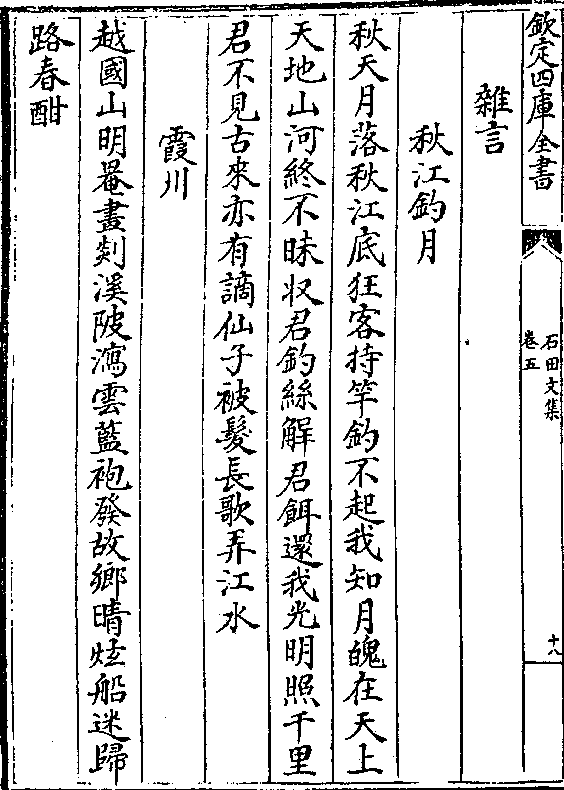 欽定四庫全書
石田文集
卷五
十八
雜言
秋江釣月
秋天月落秋江底狂客持竿釣不起我知月魄在天上
天地山河終不昧収君釣絲解君餌還我光明照千里
君不見古來亦有謫仙子被髮長歌弄江水
霞川
越國山明罨畫剡溪陂瀉雲藍袍發故鄉晴炫船迷歸
路春酣